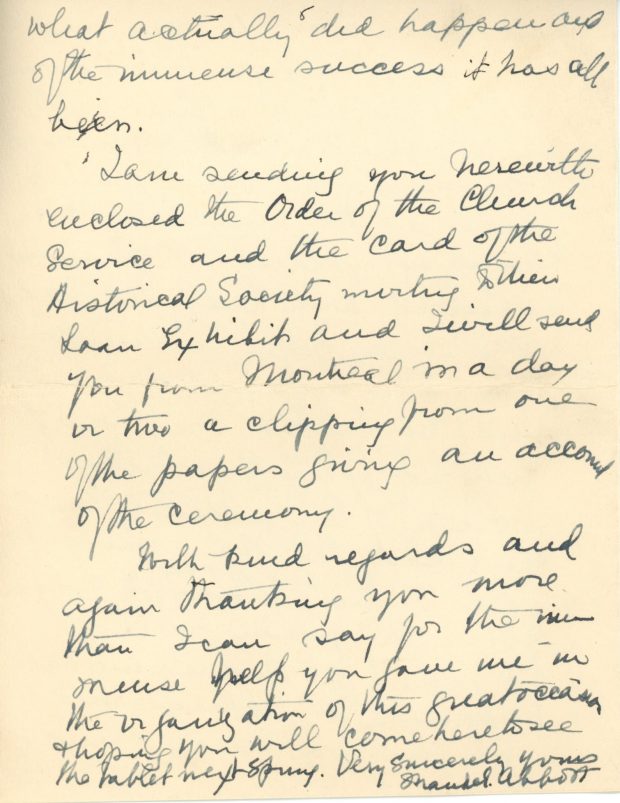 What actually did happen and
of the immense success it has all
been.
I am sending you herewith
enclosed the Order of the Church
Service and the card of the
Historical Society inviting to their
Loan Exhibit and I will send
you from Montreal in a day
or two a clipping from one
of the papers giving an account
of the ceremony.
With kind regards and
again thanking you more
than I can say for the im
mense help you gave me in
the organization of this great occasion
& hoping you will come here to see
the tablet next Spring. Very Sincerely yours
Maude E. Abbott